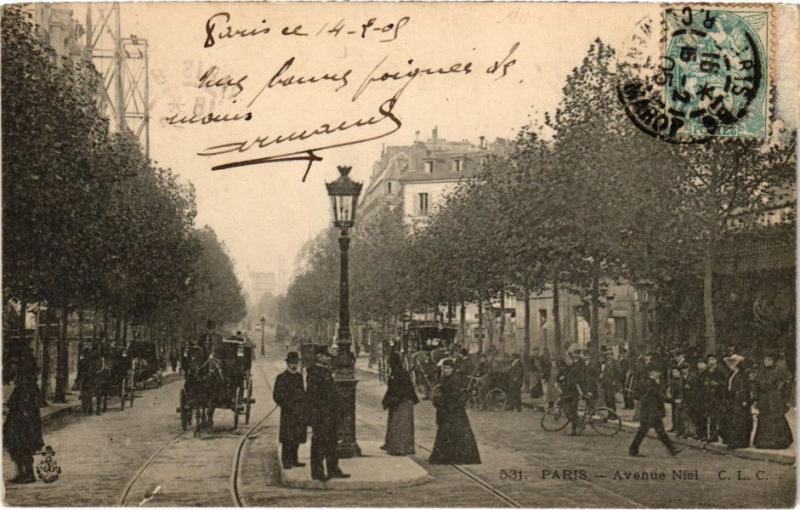 Paris ce 14-2-05
bonnes poignées de
mains
Armand
PARIS
16
2
05
POSTES
531. PARIS — Avenue Niel C. L. C.